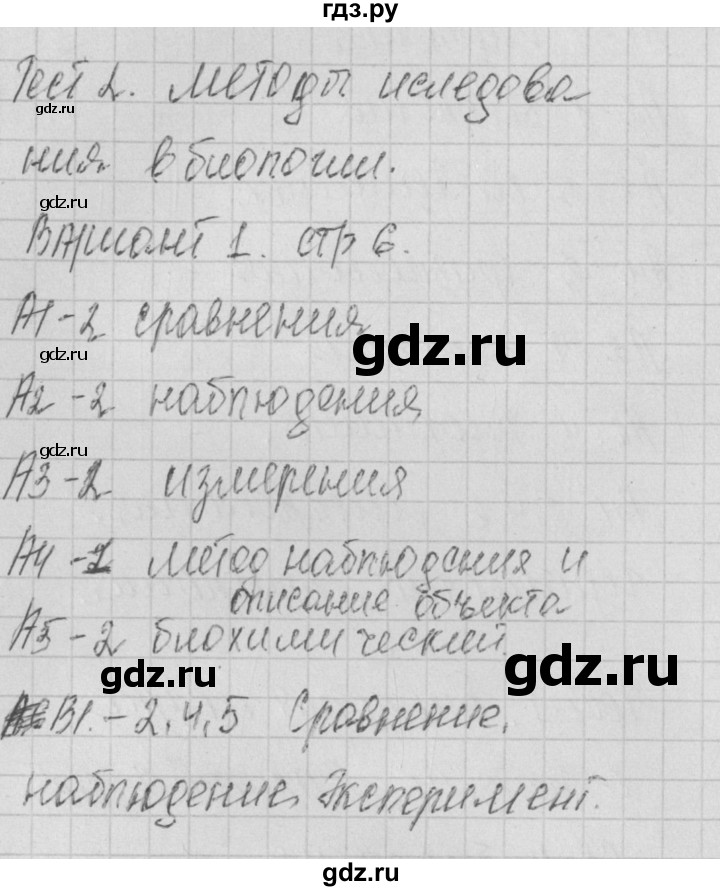 гдз.ру
Тест 2. Методы иследова
gdz.ru
ния в биологии.
gdz.ru
Вариант 1. стр 6.
А1-2 сравнения
gdz.ru
gdz.ru
А2-2 наблюдения
gdz.ru
А3-2 измерения
А4-1 метод наблюдения и
описание объекта
А5-2 биохимический
gdz.ru
gdz.ru
В1.-2,4,5 Сравнение,
наблюдение, Эксперимент.
gdz.ru